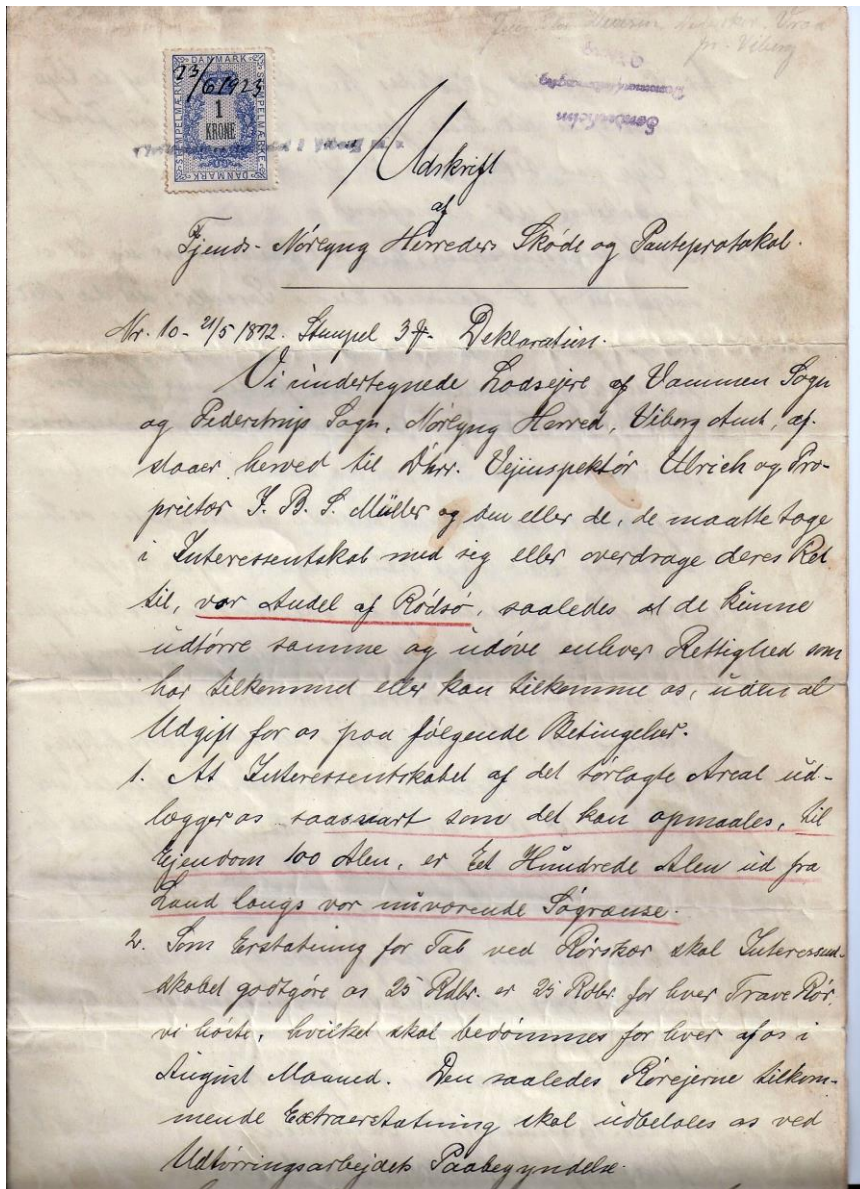 pr. Viborg
DANMARK
STEMPELMÆRKE
23/6 1923
1
KRONE
STEMPELMÆRKE
DANMARK
Sønderholm
Udskrift
af
Fjends-Nørlyng Herreders Skøde og Panteprotokol.
Nr. 10 - 21/5 1872. Stempel 3 ß. Deklaration.
Vi undertegnede Lodsejere af Vammen Sogn
og Pederstrup Sogn, Nørlyng Herred, Viborg Amt, af-
staaer herved til DHrr. Vejinspektør Ulrich og Pro-
prietær J. B. S. Müller og den eller de, de maatte tage
i Interessentskab med sig eller overdrage deres Ret
til, vor Andel af Rødsø, saaledes at de kunne
udtørre samme og udøve enhver Rettighed som
har tilkommed eller kan tilkomme os, uden al
Udgift for os paa følgende Betingelser.
1. At Interessentskabet af det tørlagte Areal ud-
lægger os saasnart som det kan opmaales, til
Ejendom 100 Alen, er Et Hundrede Alen ud fra
Land langs vor nuværende Søgrænse.
2. Som Erstatning for Tab ved Rørskær skal Interessent-
skabet godtgøre os 25 Rdlr. er 25 Rdlr. for hver Trave Rør,
vi høste, hvilket skal bedømmes for hver af os i
August Maaned. Den saaledes Rørejerne tilkom-
mende Extraerstatning skal udbetales os ved
Udtørringsarbejdets Paabegyndelse.